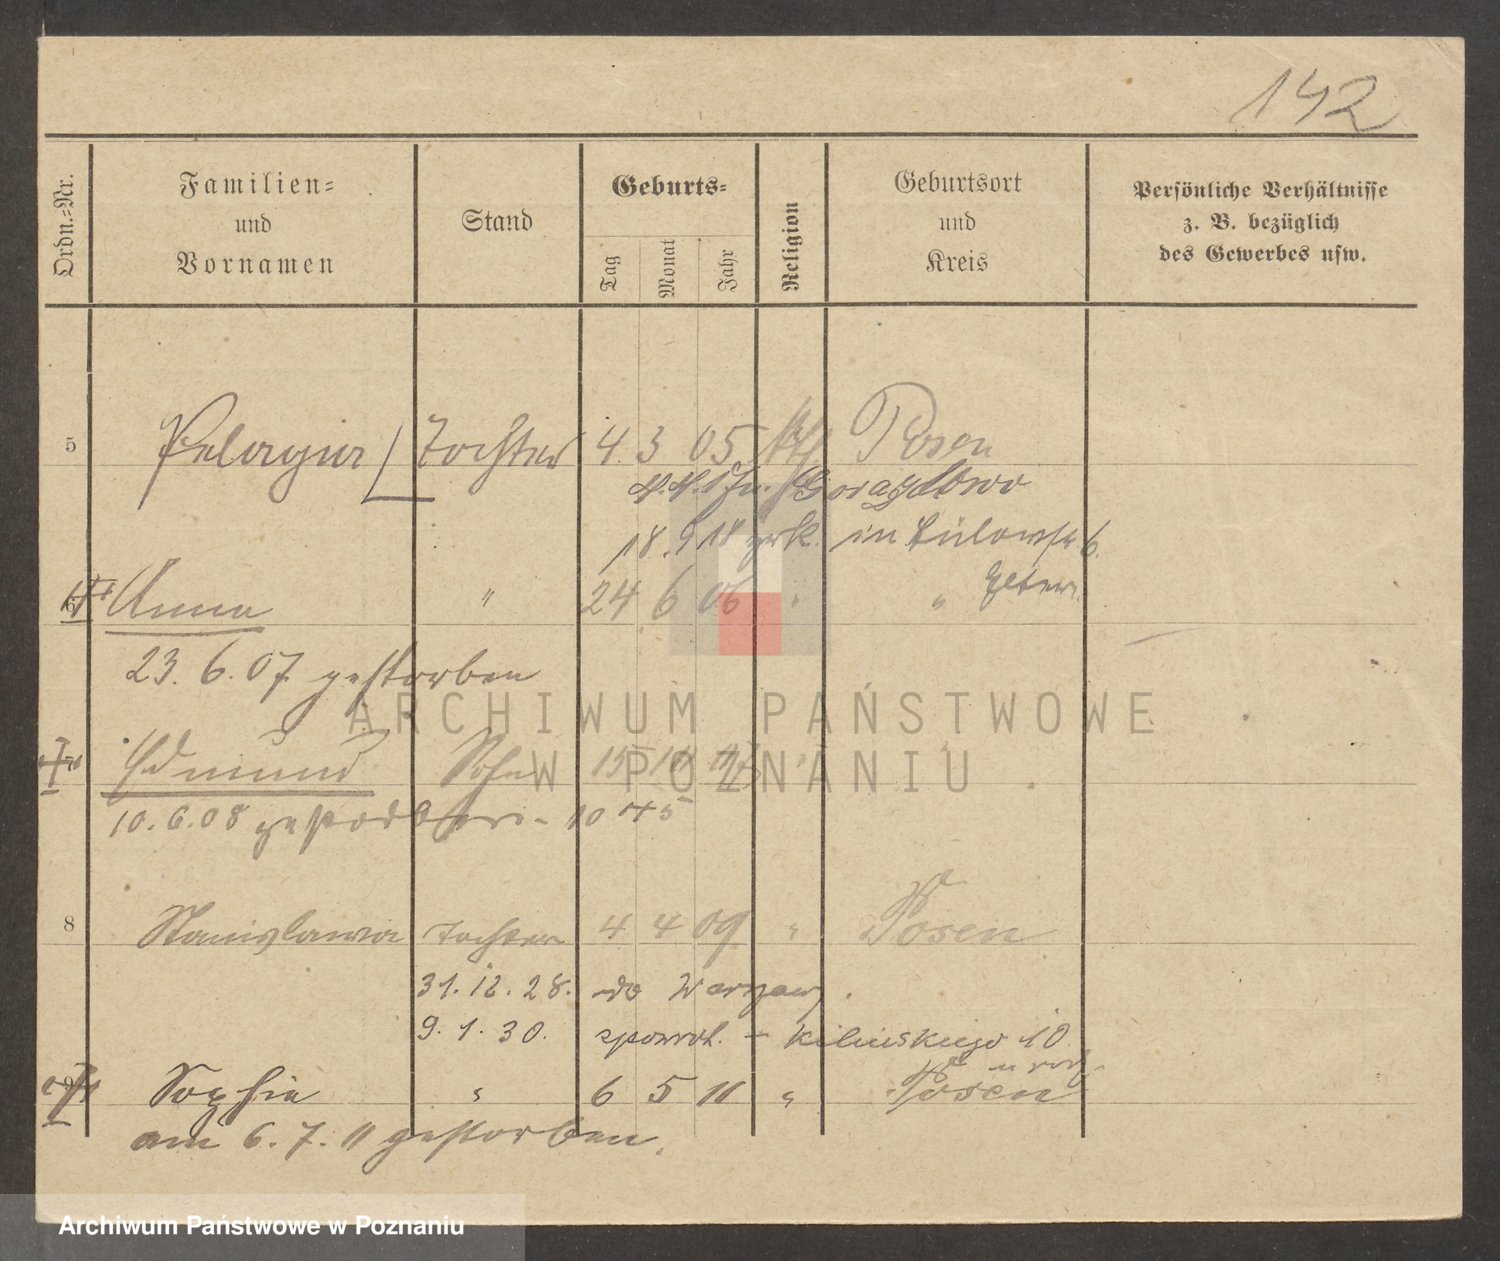 142
Ordn.-Nr.
Familien-
und
Vornamen
Stand
Geburts-
Tag
Monat
Jahr
Religion
Geburtsort
und
Kreis
Persönliche Verhältnisse
z. B. bezüglich
des Gewerbes usw.
5 Pelagia Tochter 4. 3 05 kth Posen
18. 9 18 zrk. in Bülowstr 6.
Eltern
6 Anna " 24 6 06 " "
23. 6. 07 gestorben
Edmund Sohn 15 10 07 "
10. 6. 08 gestorben
8 Stanislawa Tochter 4 4 09 " Posen
31. 12. 28. do Warszawy.
9. 1. 30. zpowrot. – Kilinskiego 10
u rodz.
9 Sophie " 6 5 11 " Posen
am 6. 7. 11 gestorben.
ARCHIWUM PAŃSTWOWE
W POZNANIU
Archiwum Państwowe w Poznaniu